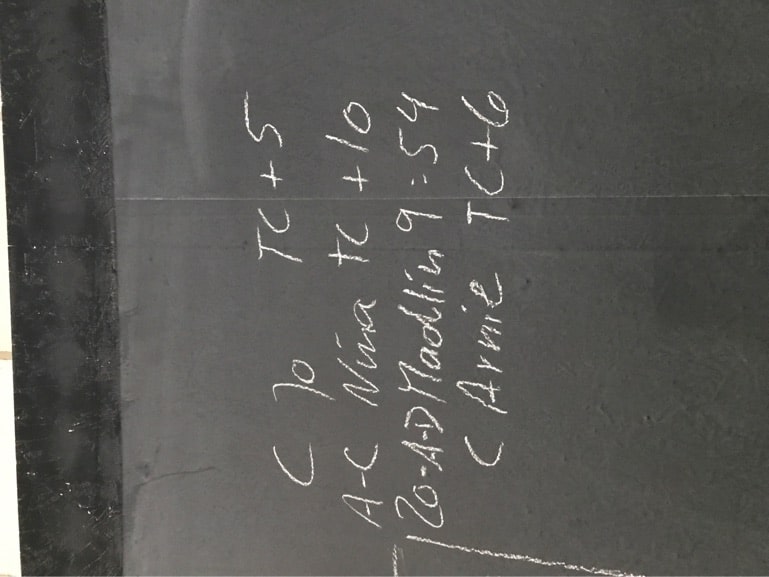 C Jo TC + 5
A-C Nina TC + 10
20-A-D Madlin 9:54
C Arnie TC + 6